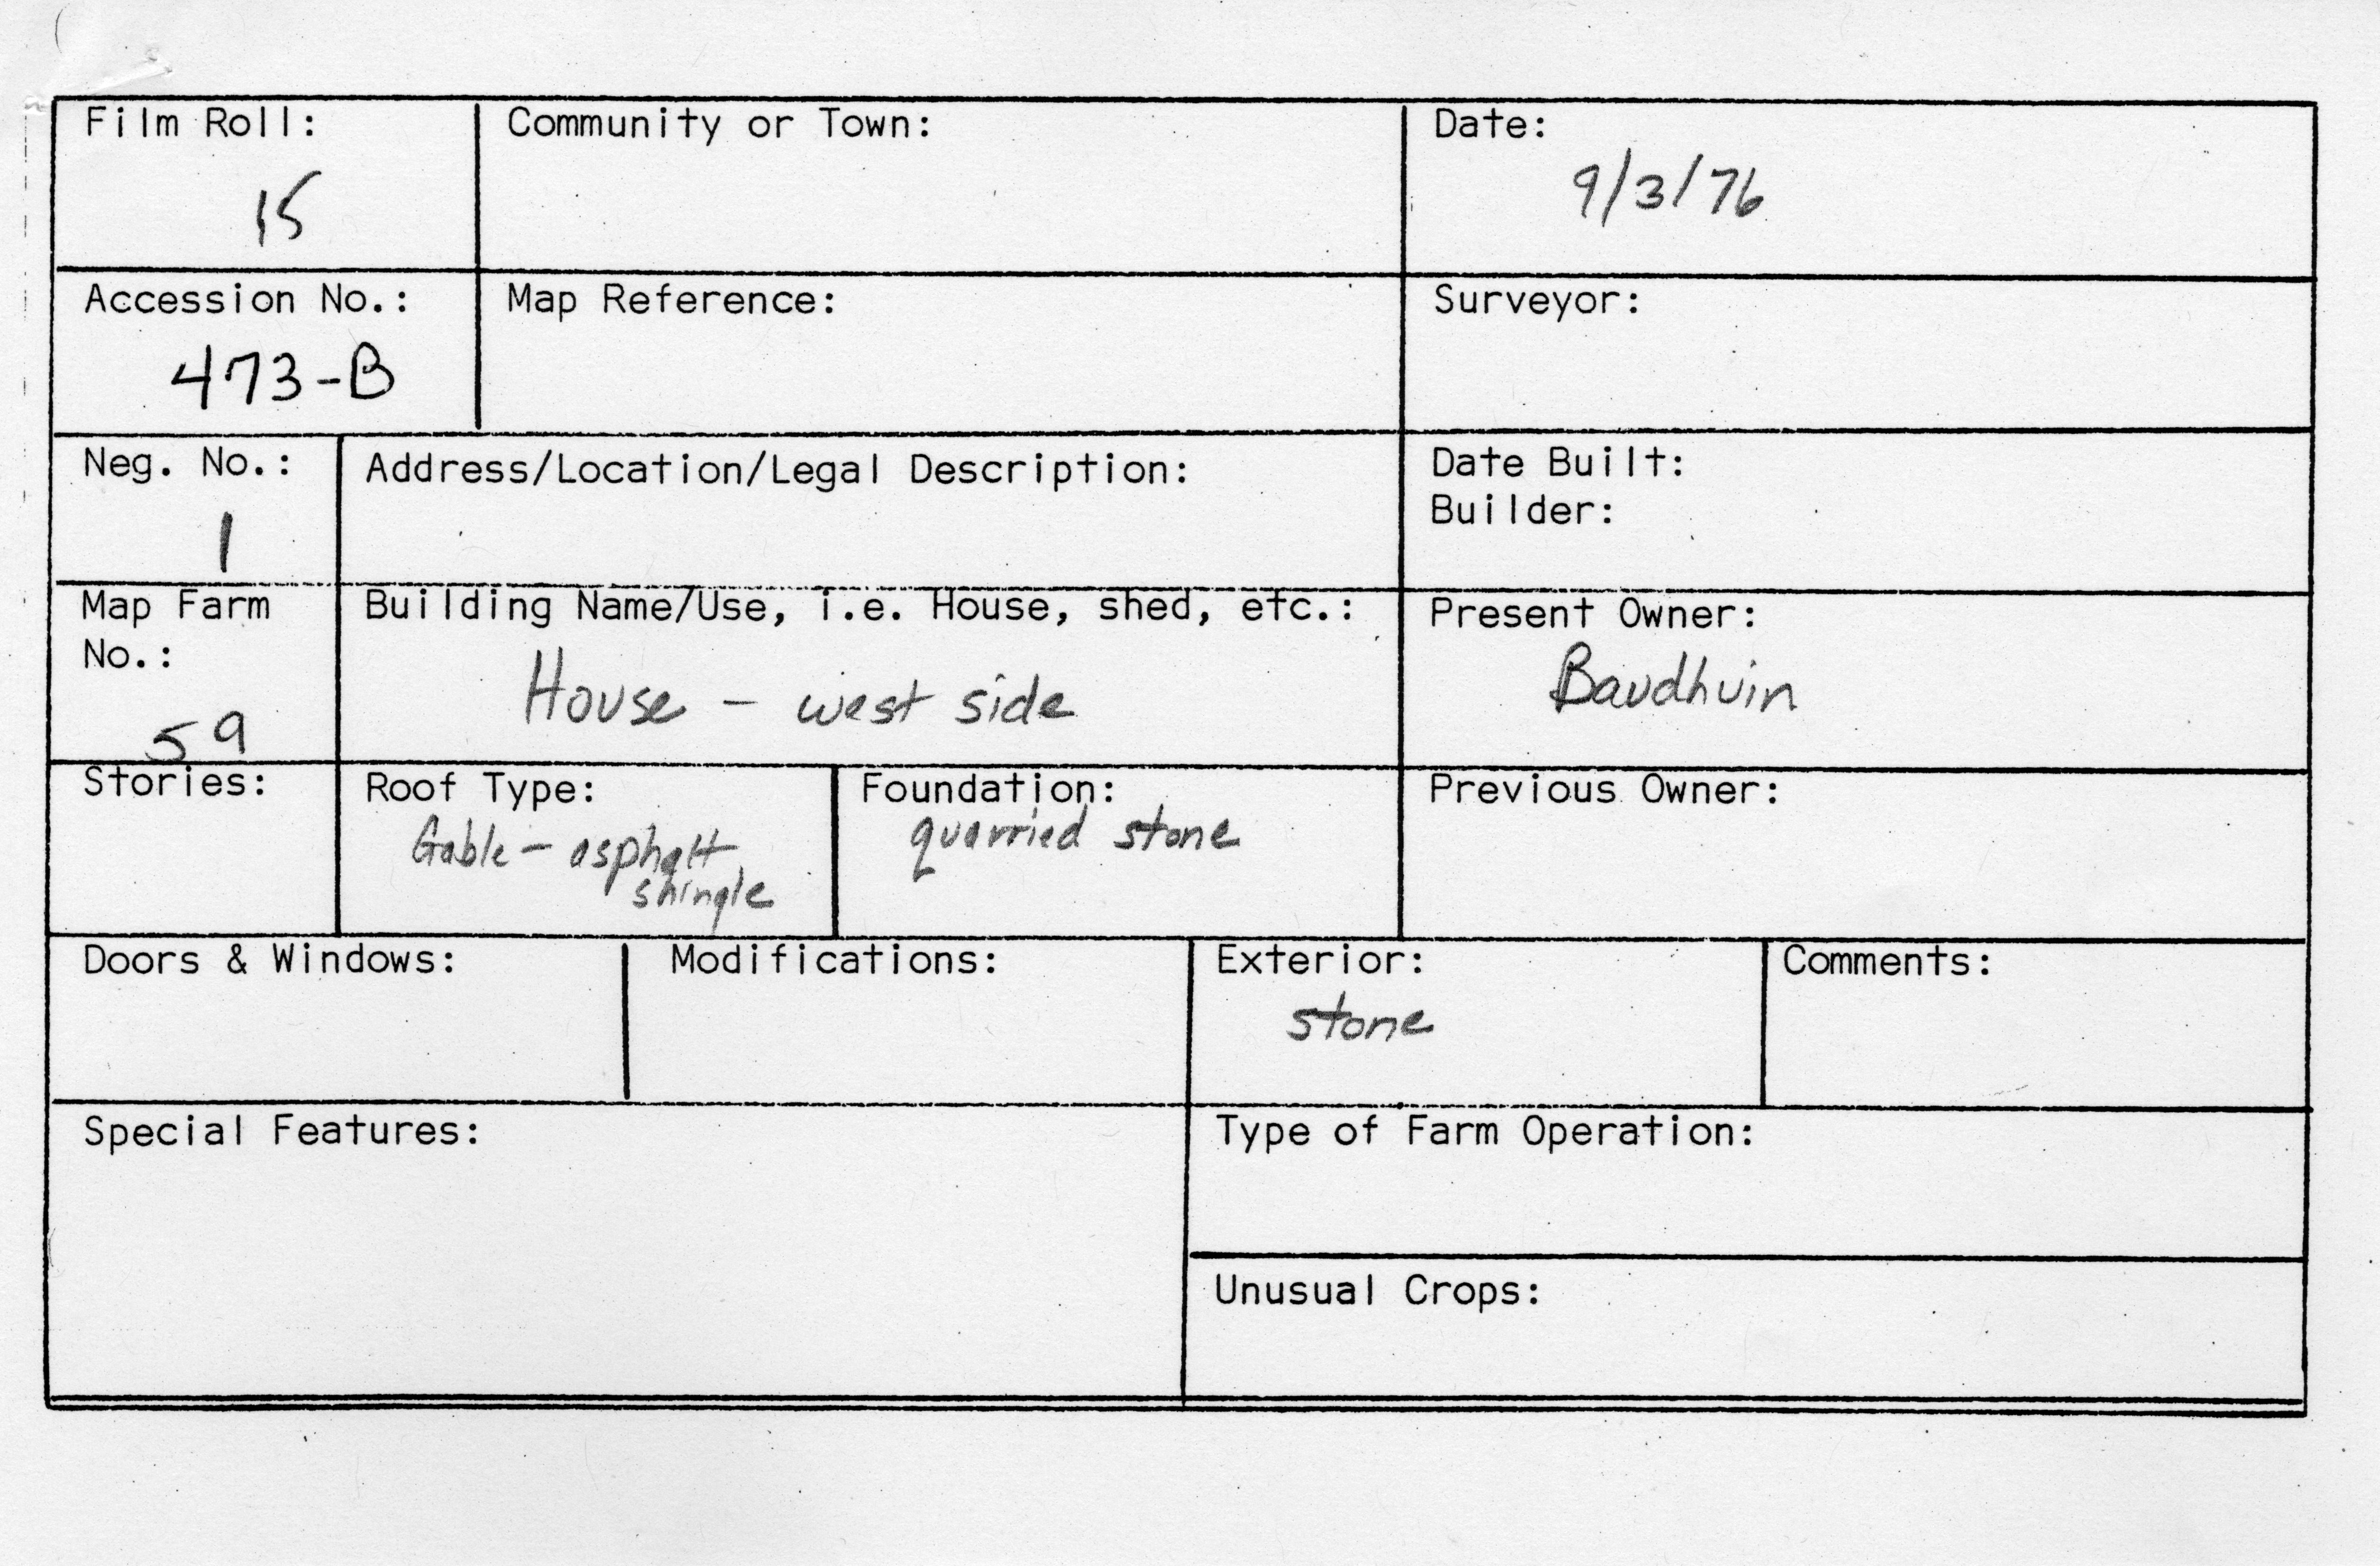 Film Roll:
15
Community or Town:
Date:
9/3/76
Accession No.:
473-B
Map Reference:
Surveyor:
Neg. No.:
1
Address/Location/Legal Description:
Date Built:
Builder:
Map Farm
No.:
59
Building Name/Use, i.e. House, shed, etc.:
House - west side
Present Owner:
Baudhuin
Stories:
Roof Type:
Gable - asphalt
shingle
Foundation:
quarried stone
Previous Owner:
Doors & Windows:
Modifications:
Exterior:
stone
Comments:
Special Features:
Type of Farm Operation:
Unusual Crops: